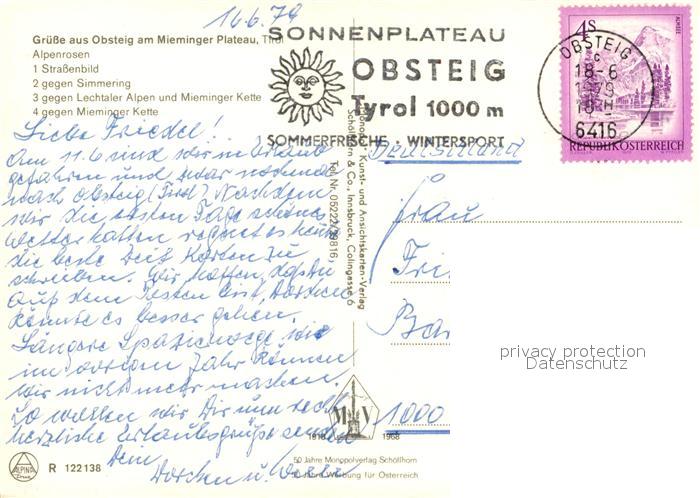 16.6.79
Grüße aus Obsteig am Mieminger Plateau, Tirol
Alpenrosen
1 Straßenbild
2 gegen Simmering
3 gegen Lechtaler Alpen und Mieminger Kette
4 gegen Mieminger Kette
SONNENPLATEAU
OBSTEIG
Tyrol 1000 m
SOMMERFRISCHE - WINTERSPORT
OBSTEIG
c
18-6
1979
6416
4S
ALMSEE
REPUBLIK ÖSTERREICH
Liebe Friedel!
Am 11.6 sind wir in Urlaub
gefahren und zwar
nach Obsteig (Tirol) Nachdem
wir die ersten Tage schönes
Wetter hatten regnet es heute
die beste Zeit Karten zu
schreiben. Wir hoffen, daß Du
auf dem
könnte es besser gehen.
Längere Spaziergänge wie
im vorigen Jahr können
wir nicht mehr machen.
So wollen wir Dir nun recht
herzliche Urlaubsgrüße senden
Dein
Dorchen u.
Deutschland
Frau
Fri
Ba
1000
Kunst- und Ansichtskarten-Verlag
Schöllhorn & Co., Innsbruck, Colingasse 6
Tel. Nr. 05222/29816
M V
1918 1968
50 Jahre Monopolverlag Schöllhorn
50 Jahre Werbung für Österreich
ALPINA
Druck
R 122138
privacy protection
Datenschutz